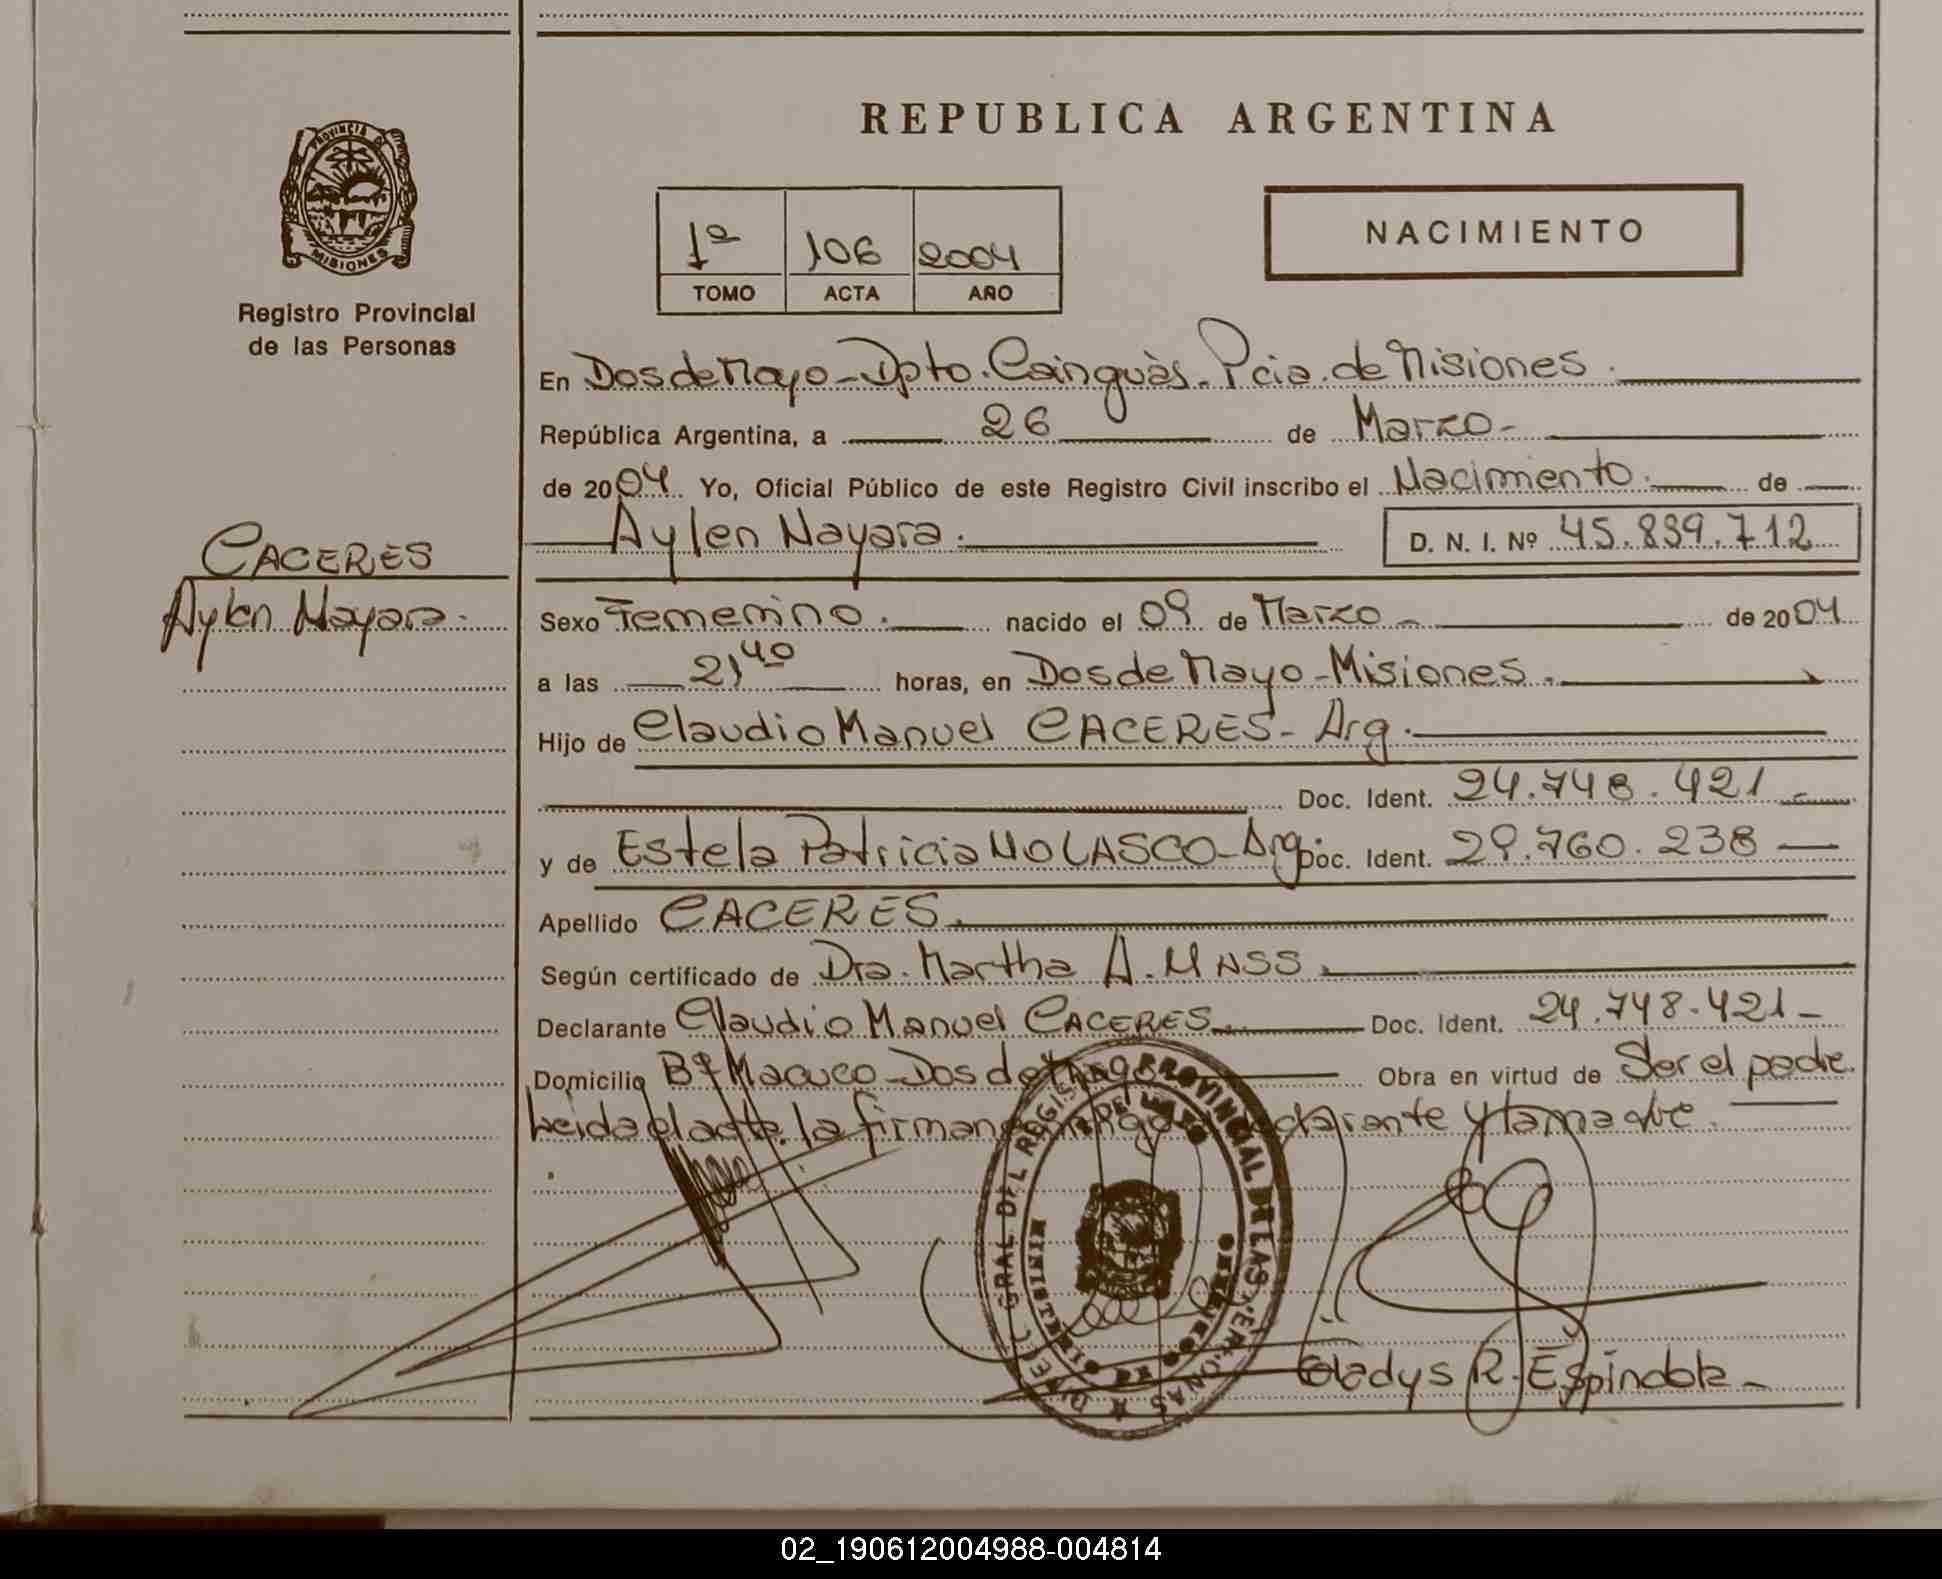 REPUBLICA ARGENTINA
PROVINCIA DE
MISIONES
Registro Provincial
de las Personas
1º 106 2004
TOMO ACTA AÑO
NACIMIENTO
En Dos de Mayo - Dpto. Cainguàs. Pcia. de Misiones.
República Argentina, a 26 de Marzo -
de 2004. Yo, Oficial Público de este Registro Civil inscribo el Nacimiento. de
Aylen Nayara. D. N. I. Nº 45.839.712
CACERES
Aylen Nayara.
Sexo Femenino. nacido el 09 de Marzo - de 2004
a las 21,40 horas, en Dos de Mayo - Misiones.
Hijo de Claudio Manuel CACERES - Arg.
Doc. Ident. 24.748.421 -
y de Estela Patricia NOLASCO - Arg Doc. Ident. 29.760.238 -
Apellido CACERES.
Según certificado de Dra. Martha A.
Declarante Claudio Manuel CACERES. Doc. Ident. 24.748.421 -
Domicilio Bº Macuco - Dos de Mayo Obra en virtud de Ser el padre.
Leida el acta, la firman y la madre.
DIREC. GRAL. DEL REGISTRO PROVINCIAL DE LAS PERSONAS
Gladys R. Espindola -
02_190612004988-004814